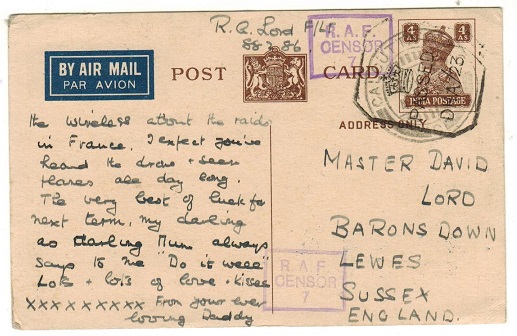 R.Q. Lord F/Lt
88786
R.A.F.
CENSOR
7
4
AS
4
AS
INDIA POSTAGE
BY AIR MAIL
PAR AVION
POST CARD.
ADDRESS ONLY
the wireless about the raids
in France. I expect you've
heard the drone + seen
planes all day long.
The very best of luck for
next term, my darling
as darling Mum always
says to me "Do it well"
Lots + lots of love + kisses
xxxxxxxxx From your ever
loving Daddy
MASTER DAVID
LORD
BARONS DOWN
LEWES
SUSSEX
ENGLAND.
R.A.F.
CENSOR
7